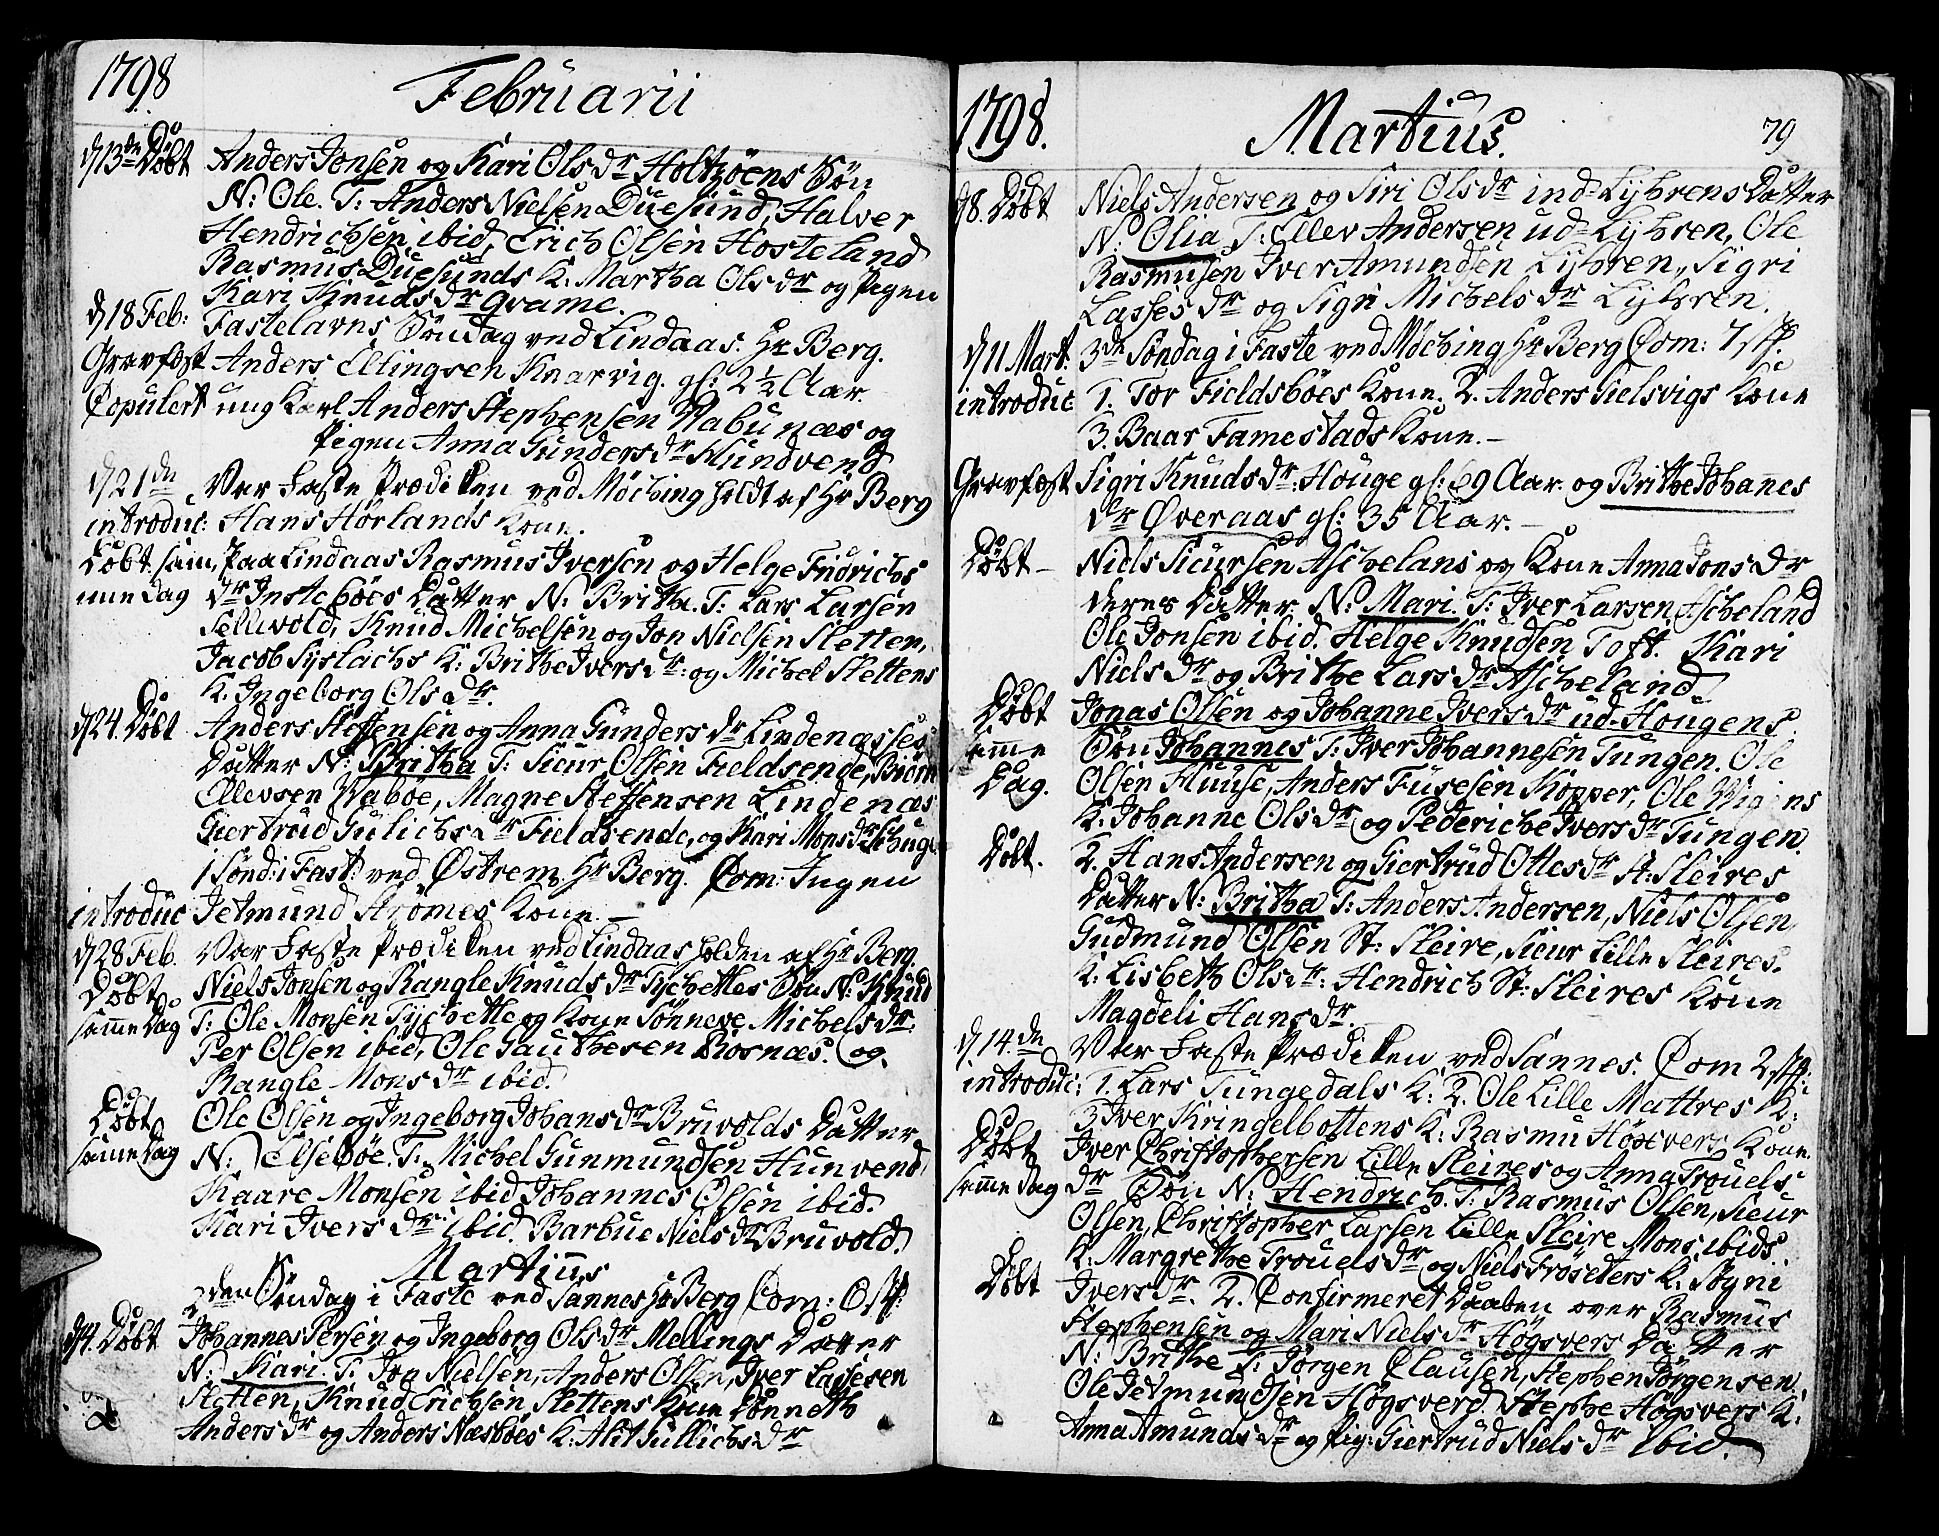 1798
Februarii
d 13de Døbt Anders Jonsen og Kari Ols dr Holtzøens Søn
N: Ole. T: Anders Nielsen Duesund, Halver
Hendrichsen ibid, Erich Olsen Hosteland
Rasmus Duesunds K: Martha Ols dr og Pigen
Kari Knuds dr qvame.
d 18 Feb: Fastelavns Søndag ved Lindaas. Hr Berg.
Gravfæst Anders Ellingsen Knarvig. gl: 2½ Aar
Copulert ung Karl Anders Stephensen Nabunæs og
Pigen Anna Gunders dr Hundvend
d 21de Var Faste Prædiken ved Møching holdt af Hr Berg
introduc: Hans Hørlands Kone.
Døbt. sam, Paa Lindaas Rasmus Iversen og Helge Fridrichs
me dag dr Instebøes Datter N: Britha. T: Lars Larsen
Selluvold, Knud Michelsen og Jon Nielsen Sletten,
Jacob Syslachs K: Brithe Ivers dr: og Michel Slettens
K. Ingeborg Ols dr.
d 24. Døbt Anders Steffensen og Anna Gunders dr Lindenæsses
Datter N: Britha T: Sicur Olsen Fieldsende, Biørn
Ellevsen Naboe, Magne Steffensen Lindenæs
Giertrud Gulichs dr Fieldsende, og Kari Mons dr
1 Sønd: i Fast: ved Østrem. Hr Berg. Com: Ingen
introduc Jetmund Strømes Kone. —
d 28 Feb. Var Faste Prædiken ved Lindaas holden af Hr Berg.
Døbt Niels Jonsen og Rangle Knuds dr Tychettes Søn N: Knud
samme Dag T: Ole Monsen Tychette og Kone Sønneve Michels dr.
Per Olsen ibid, Ole Gauthesen Riosnæs. og
Rangle Mons dr ibid.
Døbt Ole Olsen og Ingeborg Johans dr Bruvolds Datter
samme Dag N: Elsebøe. T: Michel Gunmundsen Hunvend
Kaare Monsen ibid Johannes Olsen ibid.
Kari Ivers dr ibid. Barbue Niels dr Bruvold.
Martius
2den Søndag i Faste ved Sannes Hr Berg Com: 0 st:
d 4. Døbt Johannes Persen og Ingeborg Ols dr Mellings Datter
N: Kari. T: Jon Nielsen, Anders Olsen, Iver Lassesen
Sletten, Knud Erichsen Slettens Kone Sønneth
Anders dr og Anders Næsbøes K: Alit Gullichs dr
1798.
Martius.
79
d 8. Døbt Niels Andersen og Siri Ols dr ind-Lyhrens Datter
N: Olia T: Ellev Andersen ud-Lyhren, Ole
Rasmusen Iver Amundsen Lyhren, Sigri
Lasses dr og Sigri Michels dr Lyhren.
d 11 Mart. 3de Søndag i Faste ved Møching Hr Berg Com: 7 st:
introduc 1. Tor Fieldsbøes Kone. 2. Anders Gielsvigs Kone
3. Baar Famestads Kone. —
Gravfæst Sigri Knuds dr: Houge gl: 69 Aar. og Brithe Johanes
dr Øveraas gl: 35 Aar. —
Døbt — Niels Sicursen Ascheland og Kone Anna Jons dr
deres Datter. N: Mari. T: Iver Larsen Ascheland
Ole Jonsen ibid. Helge Knudsen Toft. Kari
Niels dr og Brithe Lars dr Ascheland.
Døbt Jonas Olsen og Johanne Ivers dr ud-Hougens
samme Søn Johannes T: Iver Johannesen Tungen. Ole
Dag. Olsen Huuse, Anders Fusesen Kopper, Ole Wigens
K: Johanne Ols dr og Pederiche Ivers dr Tungen.
Døbt. 2. Hans Andersen og Giertrud Ottes dr St: Sleires
Datter N: Britha T: Anders Andersen, Niels Olsen
Gudmund Olsen St: Sleire, Sicur Lille Sleires.
K: Lisbeth Ols dr: Hendrich St: Sleires Kone
Magdeli Hans dr.
d 14.de Var Faste Prædiken ved Sannes. Com 2 st:
introduc: 1. Lars Tungedals K: 2. Ole Lille Mattres K:
3 Iver Kringelbottens K: Rasmu Høsevers Kone.
Døbt Iver Christophersen Lille Sleires og Anna Trouels
samme dag dr Søn N: Hendrich. T: Rasmus Olsen, Sicur
Olsen, Christopher Lassen Lille Sleire Mons ibids.
K: Margrethe Trouels dr og Niels Frøseters K: Sygni
Døbt Ivers dr. 2. Confirmeret Daaben over Rasmus
Stephensen og Mari Niels dr Høgsvers Datter
N: Brithe T: Jørgen Clausen, Stephen Jørgensen
Ole Jetmundsen Høgsverd Stephe Høgsvers K:
Anna Amunds dr og Pig: Giertrud Niels dr ibid.